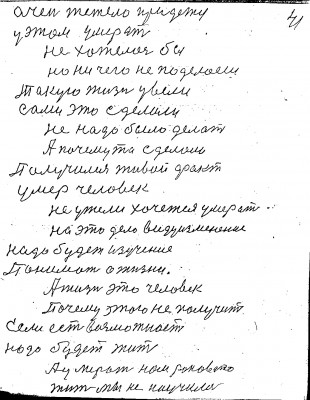 очен тяжело придету
41
у этом умерат
не хотелоя бы
но ни чего не поделаеш
Такую жизн увели
сами это сделали
не надо было делат
А почемута сделали
Получился живой факт
умер человек
не ужели хочетса умерат
на это дело видуизменение
надо будет изучение
Понимат о жизни.
А жизн это человек
Почему этого не получит
Если ест возможност
надо будет жит
А умерат нам рановато
жит мы не научилис